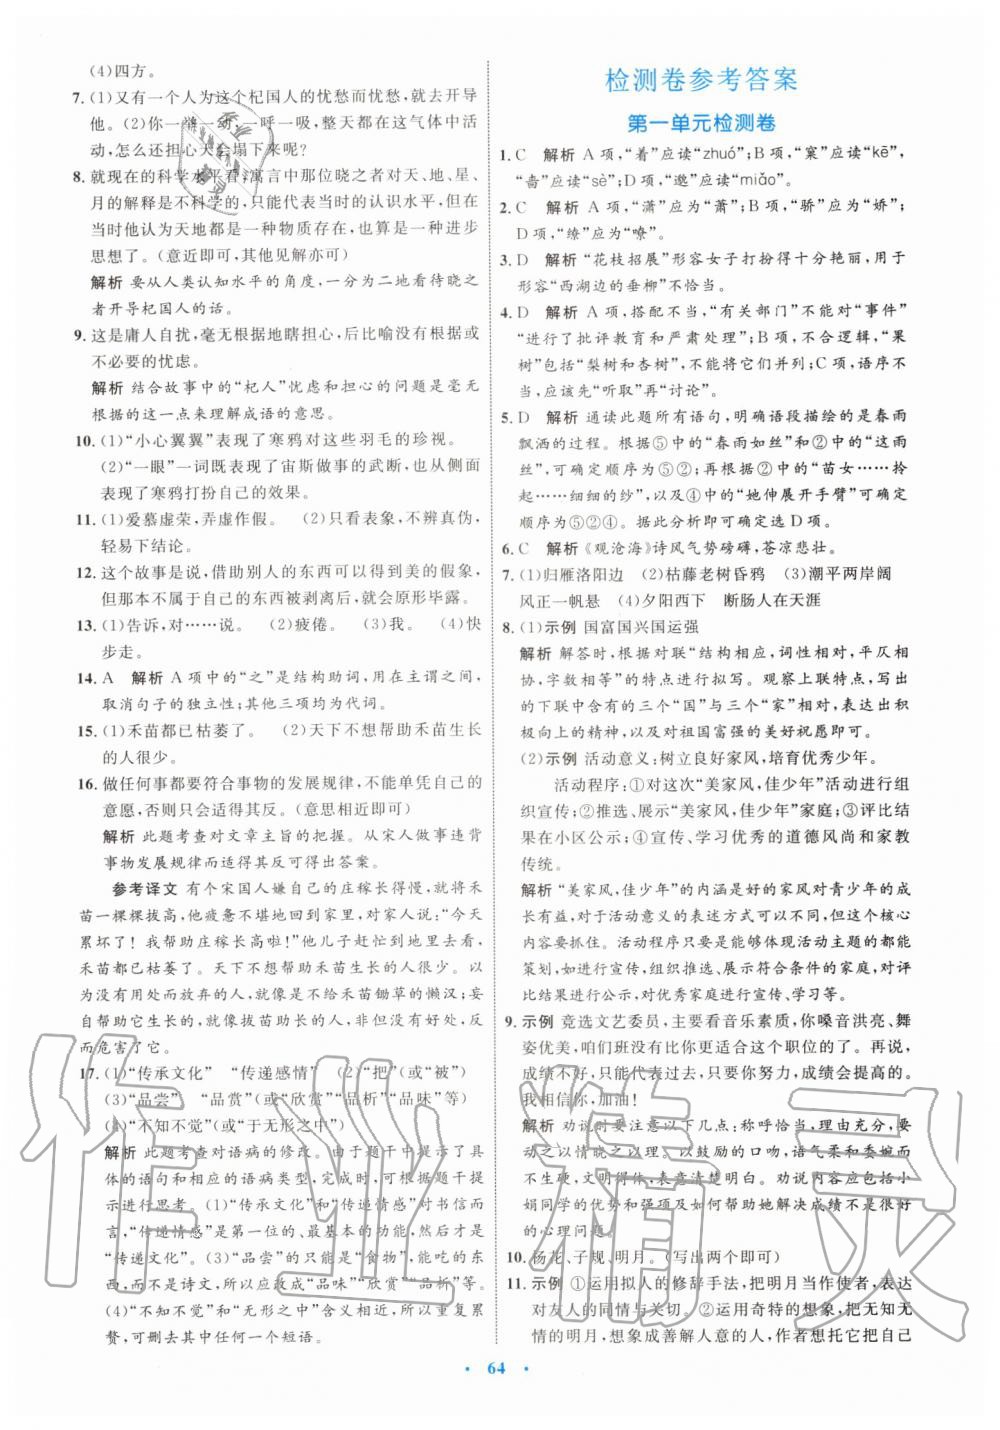 (4)四方。
7. (1)又有一个人为这个杞国人的忧愁而忧愁,就去开导
他。(2)你一举一动,一呼一吸,整天都在这气体中活
动,怎么还担心天会塌下来呢?
8. 就现在的科学水平看,寓言中那位晓之者对天、地、星、
月的解释是不科学的,只能代表当时的认识水平,但在
当时他认为天地都是一种物质存在,也算是一种进步
思想了。(意近即可,其他见解亦可)
解析 要从人类认知水平的角度,一分为二地看待晓之
者开导杞国人的话。
9. 这是庸人自扰,毫无根据地瞎担心,后比喻没有根据或
不必要的忧虑。
解析 结合故事中的“杞人”忧虑和担心的问题是毫无
根据的这一点来理解成语的意思。
10. (1)“小心翼翼”表现了寒鸦对这些羽毛的珍视。
(2)“一眼”一词既表现了宙斯做事的武断,也从侧面
表现了寒鸦打扮自己的效果。
11. (1)爱慕虚荣,弄虚作假。 (2)只看表象,不辨真伪,
轻易下结论。
12. 这个故事是说,借助别人的东西可以得到美的假象,
但那本不属于自己的东西被剥离后,就会原形毕露。
13. (1)告诉,对……说。 (2)疲倦。 (3)我。 (4)快
步走。
14. A 解析 A项中的“之”是结构助词,用在主谓之间,
取消句子的独立性;其他三项均为代词。
15. (1)禾苗都已枯萎了。 (2)天下不想帮助禾苗生长
的人很少。
16. 做任何事都要符合事物的发展规律,不能单凭自己的
意愿,否则只会适得其反。(意思相近即可)
解析 此题考查对文章主旨的把握。从宋人做事违背
事物发展规律而适得其反可得出答案。
参考译文 有个宋国人嫌自己的庄稼长得慢,就将禾
苗一棵棵拔高,他疲惫不堪地回到家里,对家人说:“今天
累坏了!我帮助庄稼长高啦!”他儿子赶忙到地里去看,
禾苗都已枯萎了。天下不想帮助禾苗生长的人很少。以
为没有用处而放弃的人,就像是不给禾苗锄草的懒汉;妄
自帮助它生长的,就像拔苗助长的人,非但没有好处,反
而危害了它。
17. (1)“传承文化” “传递感情” (2)“把”(或“被”)
(3)“品尝” “品赏”(或“欣赏”“品析”“品味”等)
(4)“不知不觉”(或“于无形之中”)
解析 此题考查对语病的修改。由于题干中提示了具
体的语句和相应的语病类型,完成时,可根据题干提示
进行思考。(1)“传承文化”和“传递情感”对书信而
言,“传递情感”是第一位的、最基本的功能,然后才是
“传递文化”。(3)“品尝”的只能是“食物”,能吃的东
西,而不是诗文,所以应改成“品味”“欣赏”“品析”等。
(4)“不知不觉”和“无形之中”含义相近,形成重复累
赘,可删去其中任何一个短语。
检测卷参考答案
第一单元检测卷
1. C 解析 A项,“着”应读“zhuó”;B项,“窠”应读“kē”,
“啬”应读“sè”;D项,“邈”应读“miǎo”。
2. C 解析 A项,“潇”应为“萧”;B项,“骄”应为“娇”;
D项,“缭”应为“嘹”。
3. D 解析 “花枝招展”形容女子打扮得十分艳丽,用于
形容“西湖边的垂柳”不恰当。
4. D 解析 A项,搭配不当,“有关部门”不能对“事件”
“进行了批评教育和严肃处理”;B项,不合逻辑,“果
树”包括“梨树和杏树”,不能将它们并列;C项,语序不
当,应该先“听取”再“讨论”。
5. D 解析 通读此题所有语句,明确语段描绘的是春雨
飘洒的过程。根据⑤中的“春雨如丝”和②中的“这雨
丝”,可确定顺序为⑤②;再根据②中的“苗女……拎
起……细细的纱”,以及④中的“她伸展开手臂”可确定
顺序为⑤②④。据此分析即可确定选D项。
6. C 解析 《观沧海》诗风气势磅礴,苍凉悲壮。
7. (1)归雁洛阳边 (2)枯藤老树昏鸦 (3)潮平两岸阔
风正一帆悬 (4)夕阳西下 断肠人在天涯
8. (1)示例 国富国兴国运强
解析 解答时,根据对联“结构相应,词性相对,平仄相
协,字数相等”的特点进行拟写。观察上联特点,写出
的下联中含有的三个“国”与三个“家”相对,并能突出积
极向上的精神,以及对祖国富强的美好祝愿即可。
(2)示例 活动意义:树立良好家风,培育优秀少年。
活动程序:①对这次“美家风,佳少年”活动进行组
织宣传;②推选、展示“美家风,佳少年”家庭;③评比结
果在小区公示;④宣传、学习优秀的道德风尚和家教
传统。
解析 “美家风,佳少年”的内涵是好的家风对青少年的成
长有益,对于活动意义的表述方式可以不同,但这个核心
内容要抓住。活动程序只要是能够体现活动主题的都能
策划,如进行宣传,组织推选、展示符合条件的家庭,对评
比结果进行公示,对优秀家庭进行宣传、学习等。
9. 示例 竞选文艺委员,主要看音乐素质,你嗓音洪亮、舞
姿优美,咱们班没有比你更适合这个职位的了。再说,
成绩不好,只能代表过去,只要你努力,成绩会提高的。
我相信你,加油!
解析 劝说时要注意以下几点:契合情境,理由充分,要
动之以情晓之以理。用鼓励的口吻,语气柔和委婉而
不生硬,文明得体,表意清楚明白。劝说内容应结合小
娟同学的优势和强项及如何帮助她解决成绩不是很好
的心理问题。
10. 杨花、子规、明月。(写出两个即可)
11. 示例 ①运用拟人的修辞手法,把明月当作使者,表达
对友人的同情与关切。②运用奇特的想象,把无知无
情的明月,想象成善解人意的人,作者想托它把自己
64
作业精灵
作业
精灵